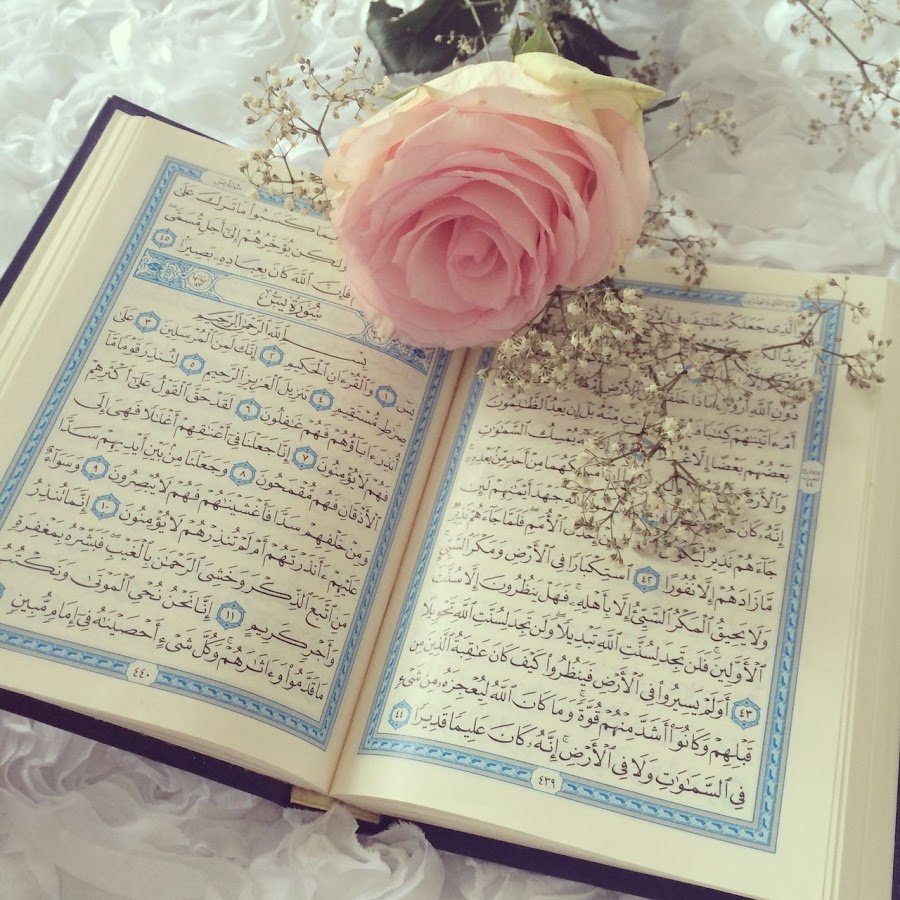 ٱلَّذِى جَعَلَكُمْ خَلَٰٓئِفَ فِى ٱلْأَرْضِ
دُونِ ٱللَّهِ أَرُونِى مَاذَا
أَمْ ءَاتَيْنَٰهُمْ كِتَٰبًا بَلْ إِن يَعِدُ ٱلظَّٰلِمُونَ
بَعْضُهُم بَعْضًا إِلَّا يُمْسِكُ ٱلسَّمَٰوَٰتِ
وَٱلْأَرْضَ مِنْ أَحَدٍ مِّنۢ بَعْدِهِۦٓ
إِنَّهُۥ كَانَ جَهْدَ أَيْمَٰنِهِمْ لَئِن
جَآءَهُمْ نَذِيرٌ ٱلْأُمَمِ فَلَمَّا جَآءَهُمْ نَذِيرٌ
مَّا زَادَهُمْ إِلَّا نُفُورًا ٤٢ ٱسْتِكْبَارًا فِى ٱلْأَرْضِ وَمَكْرَ ٱلسَّيِّئِ
وَلَا يَحِيقُ ٱلْمَكْرُ ٱلسَّيِّئُ إِلَّا بِأَهْلِهِۦ فَهَلْ يَنظُرُونَ إِلَّا سُنَّتَ
ٱلْأَوَّلِينَ فَلَن تَجِدَ لِسُنَّتِ ٱللَّهِ تَبْدِيلًا وَلَن تَجِدَ لِسُنَّتِ ٱللَّهِ تَحْوِيلًا
٤٣ أَوَلَمْ يَسِيرُوا۟ فِى ٱلْأَرْضِ فَيَنظُرُوا۟ كَيْفَ كَانَ عَٰقِبَةُ ٱلَّذِينَ مِن
قَبْلِهِمْ وَكَانُوٓا۟ أَشَدَّ مِنْهُمْ قُوَّةً وَمَا كَانَ ٱللَّهُ لِيُعْجِزَهُۥ مِن شَىْءٍ
فِى ٱلسَّمَٰوَٰتِ وَلَا فِى ٱلْأَرْضِ إِنَّهُۥ كَانَ عَلِيمًا قَدِيرًا ٤٤
٤٣٩
بِمَا كَسَبُوا۟ مَا تَرَكَ عَلَىٰ
وَلَٰكِن يُؤَخِّرُهُمْ إِلَىٰٓ أَجَلٍ مُّسَمًّى
فَإِنَّ ٱللَّهَ كَانَ بِعِبَادِهِۦ بَصِيرًۢا ٤٥
سُورَةُ يسٓ
بِسْمِ ٱللَّهِ ٱلرَّحْمَٰنِ ٱلرَّحِيمِ
يسٓ ١ وَٱلْقُرْءَانِ ٱلْحَكِيمِ ٢ إِنَّكَ لَمِنَ ٱلْمُرْسَلِينَ ٣ عَلَىٰ
صِرَٰطٍ مُّسْتَقِيمٍ ٤ تَنزِيلَ ٱلْعَزِيزِ ٱلرَّحِيمِ ٥ لِتُنذِرَ قَوْمًا مَّآ
أُنذِرَ ءَابَآؤُهُمْ فَهُمْ غَٰفِلُونَ ٦ لَقَدْ حَقَّ ٱلْقَوْلُ عَلَىٰٓ أَكْثَرِهِمْ
فَهُمْ لَا يُؤْمِنُونَ ٧ إِنَّا جَعَلْنَا فِىٓ أَعْنَٰقِهِمْ أَغْلَٰلًا فَهِىَ إِلَى
ٱلْأَذْقَانِ فَهُم مُّقْمَحُونَ ٨ وَجَعَلْنَا مِنۢ بَيْنِ أَيْدِيهِمْ سَدًّا
وَمِنْ خَلْفِهِمْ سَدًّا فَأَغْشَيْنَٰهُمْ فَهُمْ لَا يُبْصِرُونَ ٩ وَسَوَآءٌ
عَلَيْهِمْ ءَأَنذَرْتَهُمْ أَمْ لَمْ تُنذِرْهُمْ لَا يُؤْمِنُونَ ١٠ إِنَّمَا تُنذِرُ
مَنِ ٱتَّبَعَ ٱلذِّكْرَ وَخَشِىَ ٱلرَّحْمَٰنَ بِٱلْغَيْبِ فَبَشِّرْهُ بِمَغْفِرَةٍ
وَأَجْرٍ كَرِيمٍ ١١ إِنَّا نَحْنُ نُحْىِ ٱلْمَوْتَىٰ وَنَكْتُبُ
مَا قَدَّمُوا۟ وَءَاثَٰرَهُمْ وَكُلَّ شَىْءٍ أَحْصَيْنَٰهُ فِىٓ إِمَامٍ مُّبِينٍ
٤٤٠